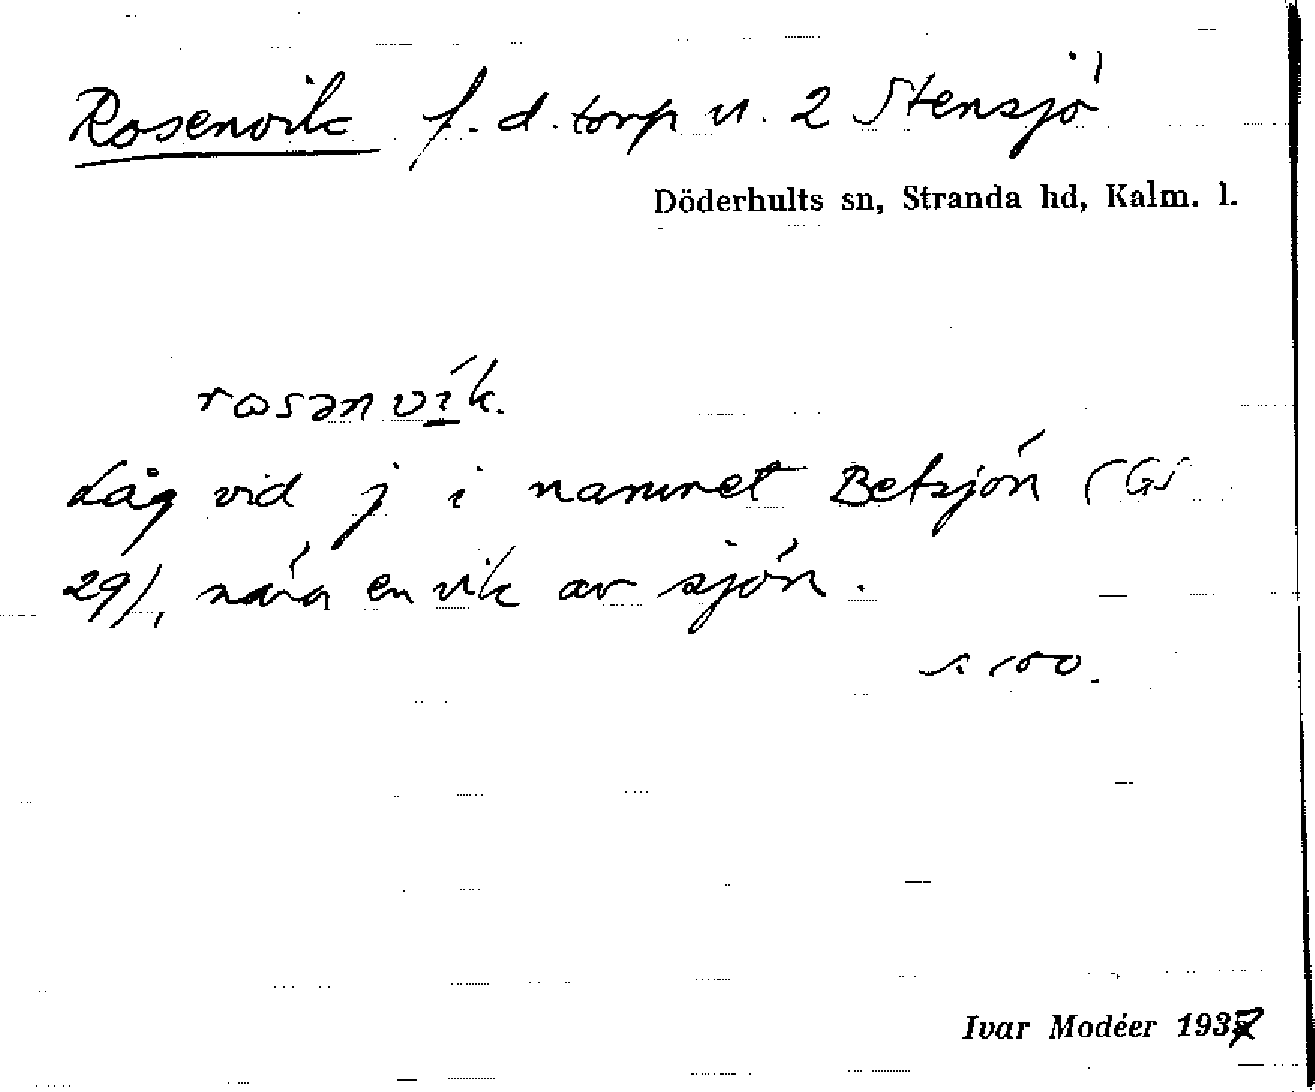 Rosenvik f. d. torp u. 2 Stensjö
Döderhults sn, Stranda hd, Kalm. l.
rosənvík.
Låg vid j i namnet Betsjön (GS
29), nära en vik av sjön.
s. 100.
Ivar Modéer 1937